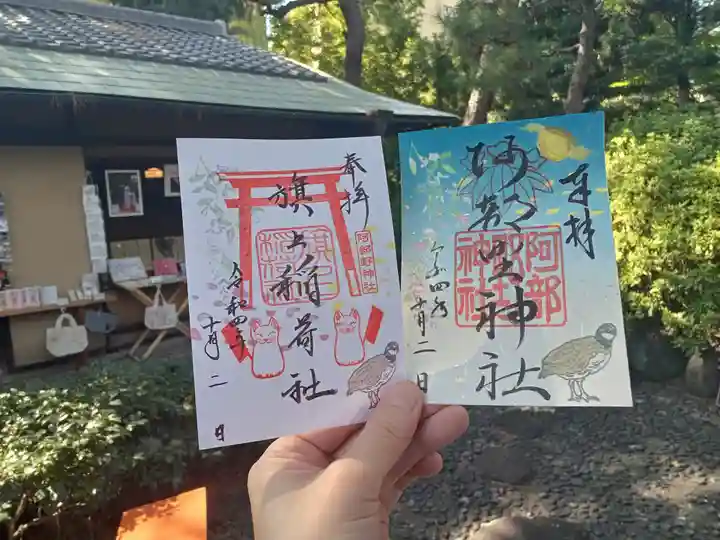 奉拝
旗上稲荷社
阿部野神社
令和四年
十月二日
奉拝
阿部野神社
阿部野神社
令和四年
十月二日